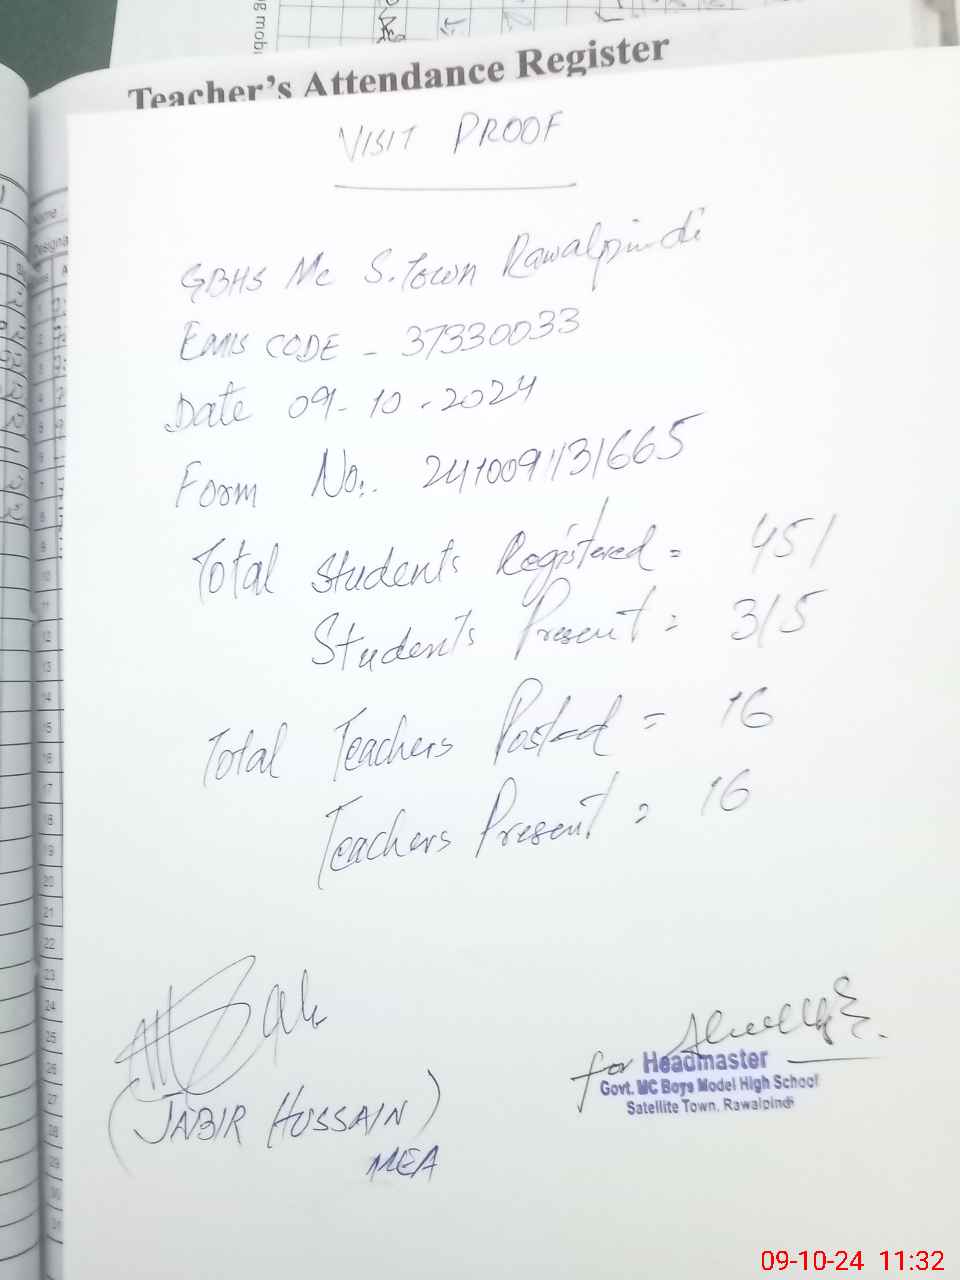 Teacher's Attendance Register
VISIT PROOF
GBHS Mc S.Town Rawalpindi
EMIS CODE - 37330033
Date 09-10-2024
Form No:. 241009131665
Total Students Registered = 451
Students Present = 315
Total Teachers Posted = 16
Teachers Present = 16
(JABIR HUSSAIN)
MEA
for Headmaster
Govt. MC Boys Model High School
Satellite Town, Rawalpindi
09-10-24 11:32